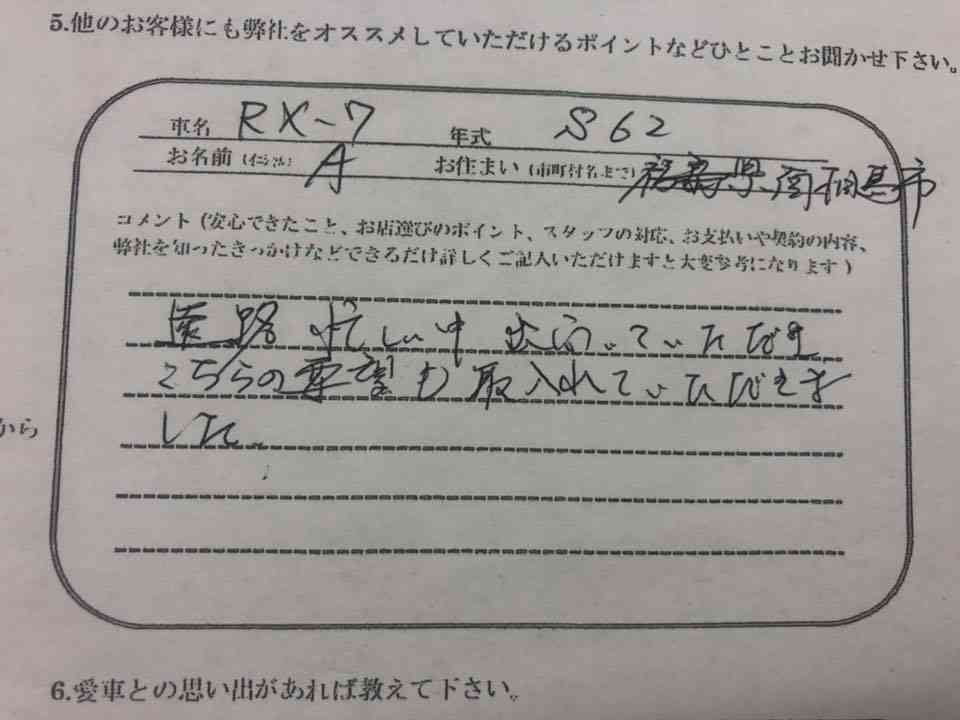 5.他のお客様にも弊社をオススメしていただけるポイントなどひとことお聞かせ下さい。
車名 RX-7 年式 S62
お名前(イニシャル) A お住まい(市町村名まで) 福島県南相馬市
コメント(安心できたこと、お店選びのポイント、スタッフの対応、お支払いや契約の内容、
弊社を知ったきっかけなどできるだけ詳しくご記入いただけますと大変参考になります)
遠路忙しい中出向いていただき
こちらの要望も取入れていただきま
した。
から
6.愛車との思い出があれば教えて下さい。